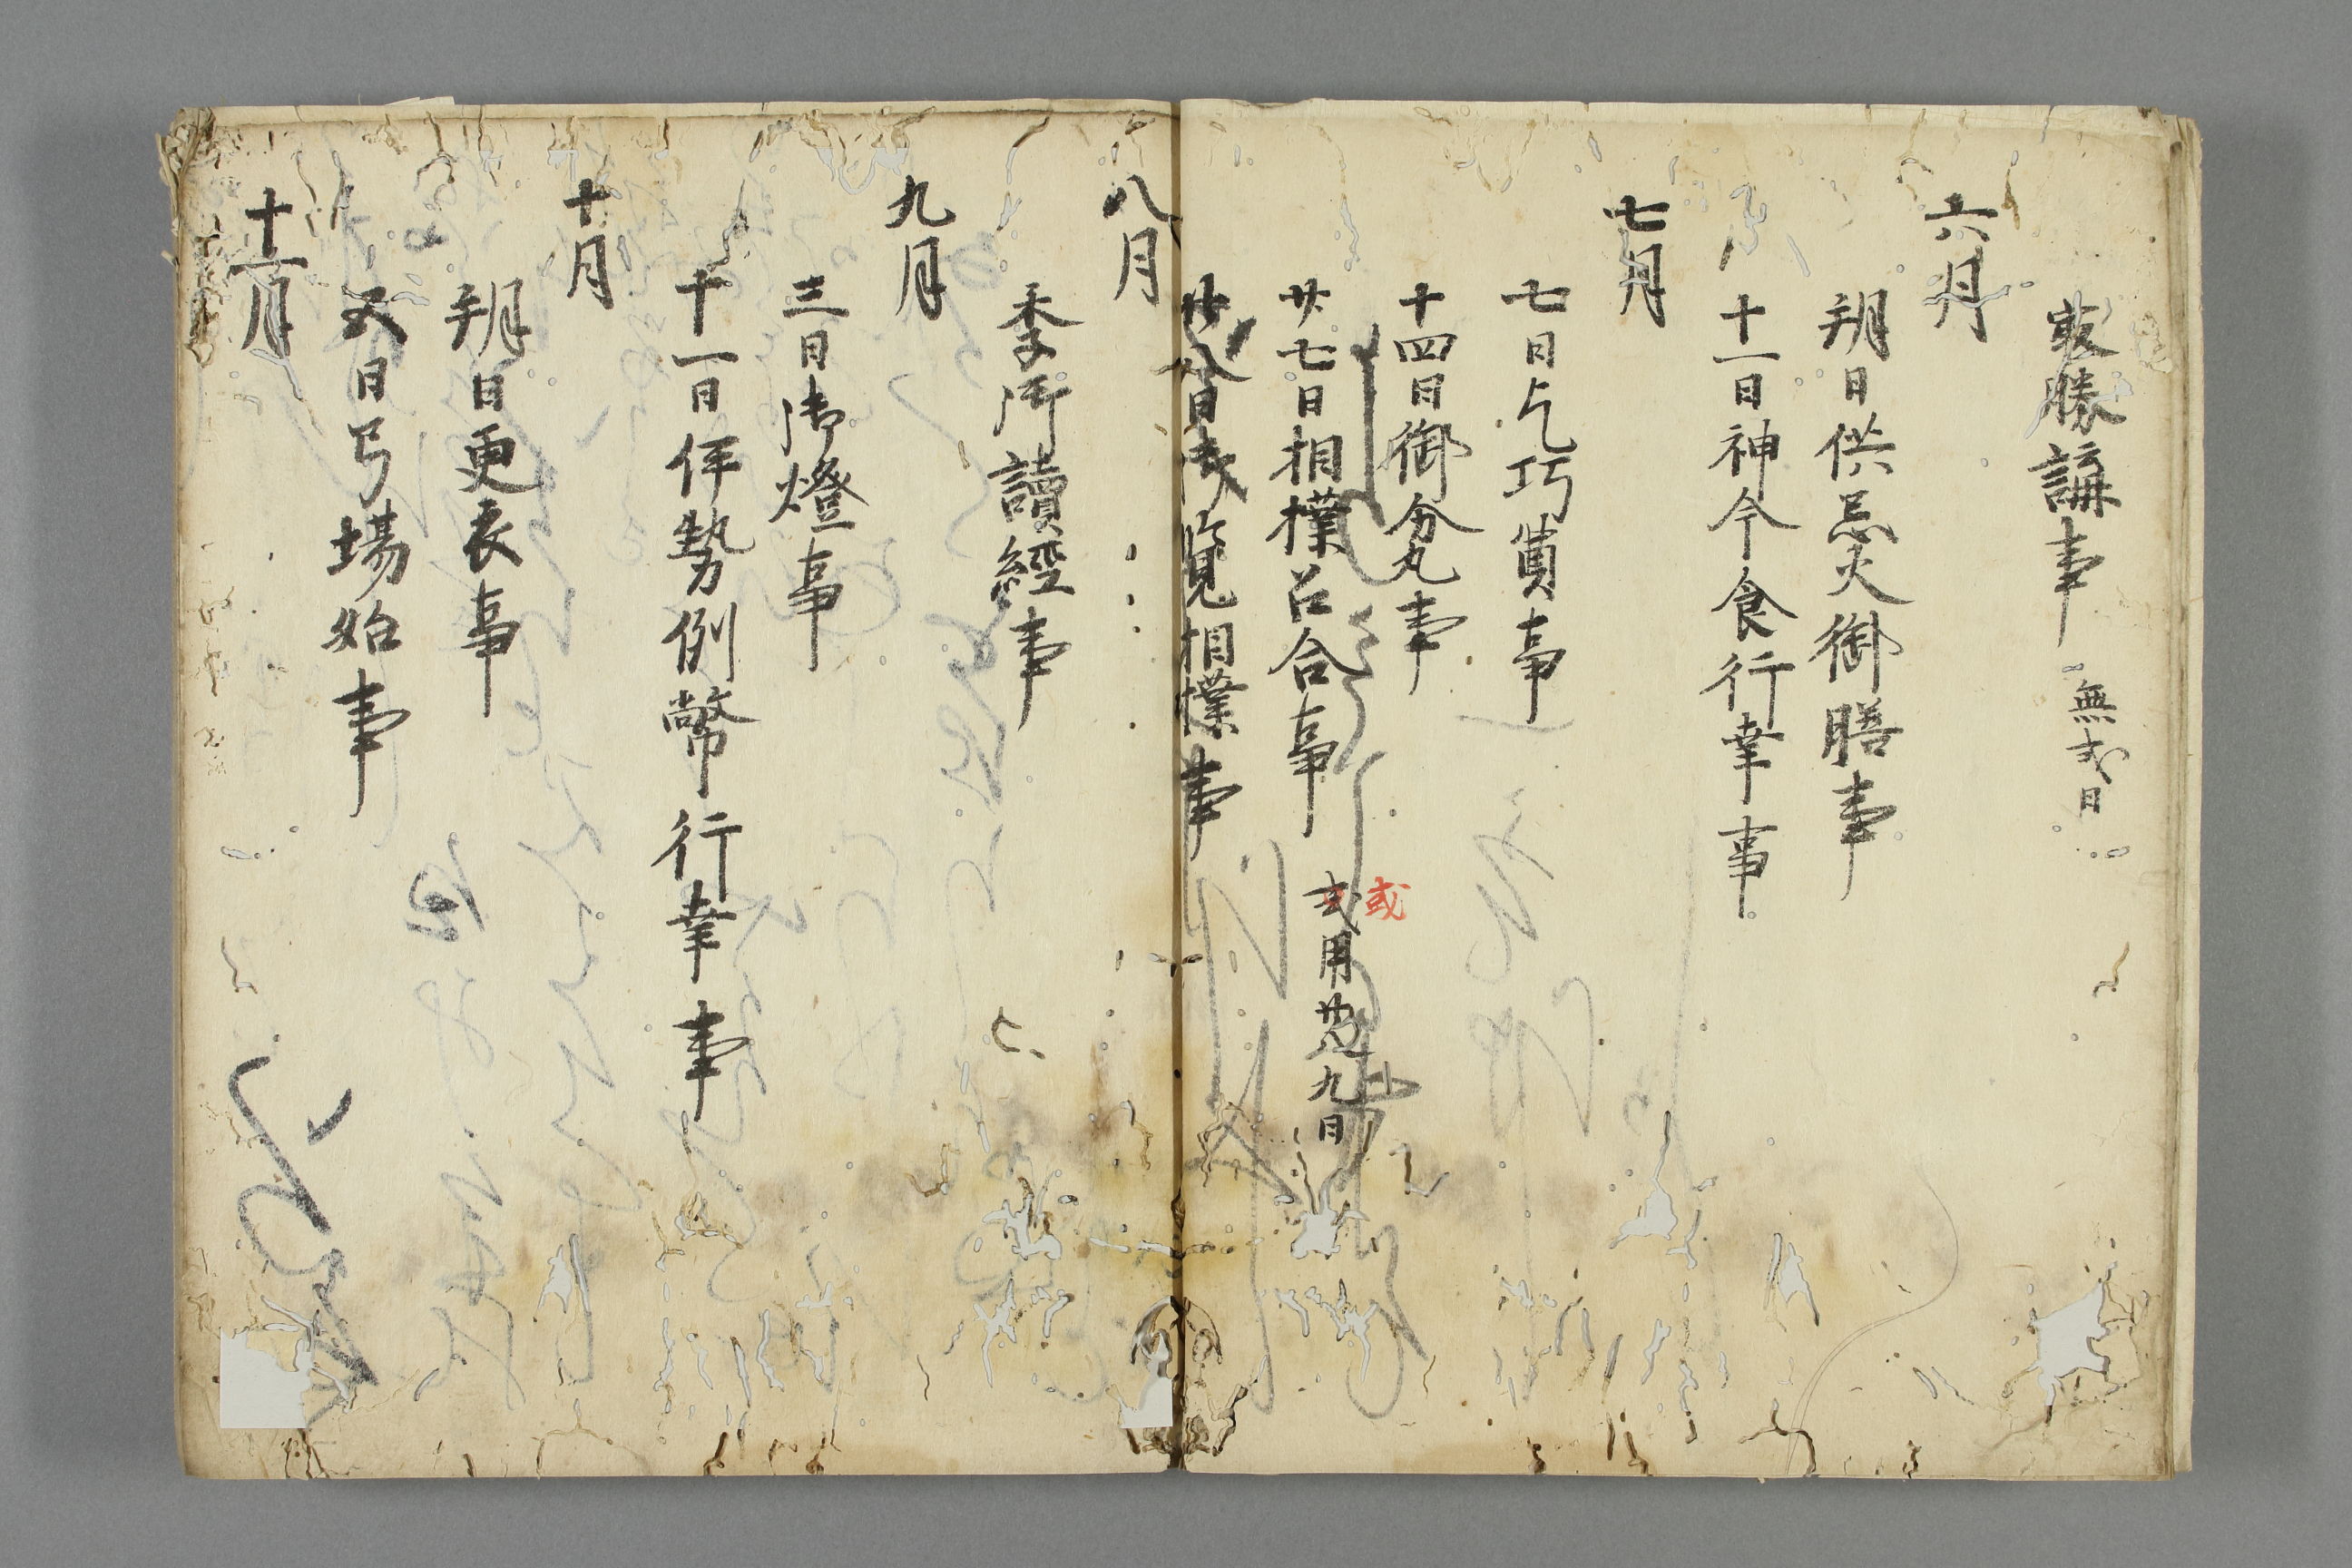 㝡勝講事 無式日
六月
朔日供忌火御膳事
十一日神今食行幸事
七月
七日乞巧奠事
十四日御盆事
廿七日相撲召合事 式用廿八九日
或
廿八日御覧相撲事
八月
季御讀經事
九月
三日御燈事
十一日伊勢例幣行幸事
十月
朔日更衣事
五日弓場始事
十一月